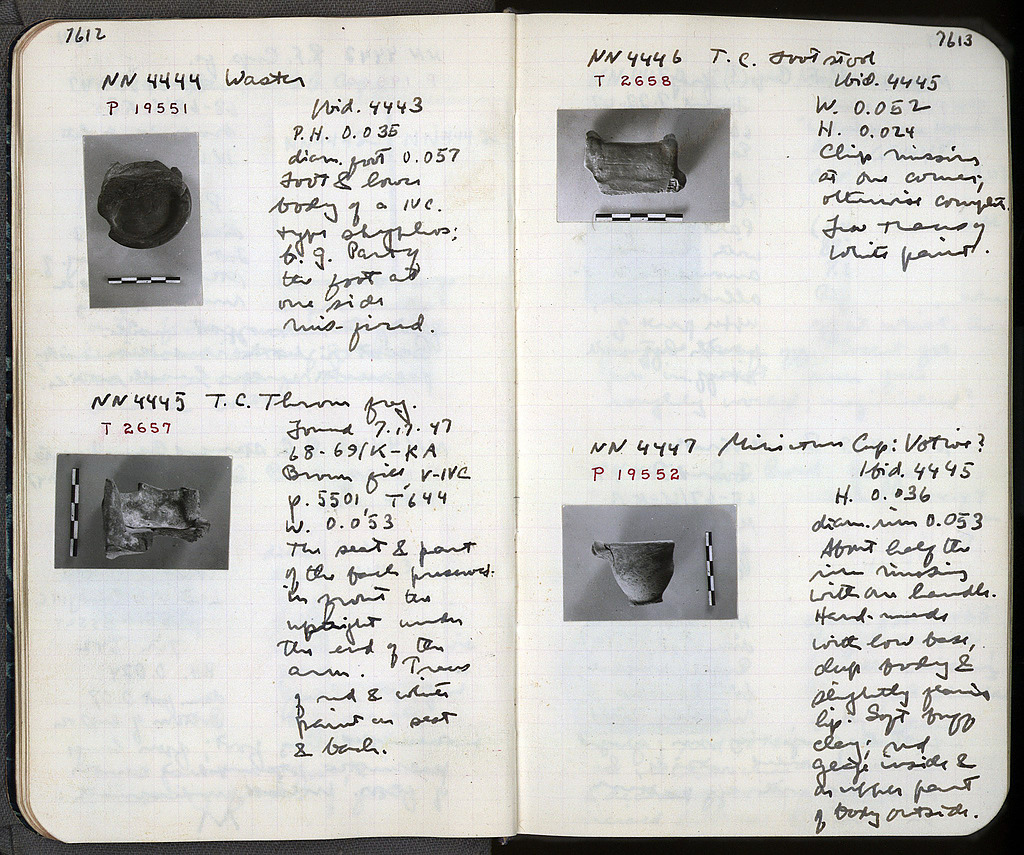 7612
NN 4444 Waster
P 19551
Ibid. 4443
P.H. 0.035
diam. foot 0.057
Foot & lower
body of a IVC.
type skyphos;
b.g. Part of
the foot at
one side
mis-fired.
NN 4445 T.C. Throne frag.
T 2657
Found 7.17.47
68-69/K-KA
Brown fill, V-IVC
p. 5501 T'644
W. 0.053
The seat & part
of the back preserved:
in front the
upright under
the end of the
arm. Traces
of red & white
paint on seat
& back.
7613
NN 4446 T.C. Footstool
T 2658
Ibid. 4445
W. 0.052
H. 0.024
Chip missing
at one corner;
otherwise complete.
Few traces of
white paint.
NN 4447 Miniature Cup: Votive?
P 19552
Ibid. 4445
H. 0.036
diam. rim 0.053
About half the
rim missing
with one handle.
Hand-made
with low base,
deep body &
slightly flaring
lip. Soft buff
clay; red
glaze inside &
on upper part
of body outside.